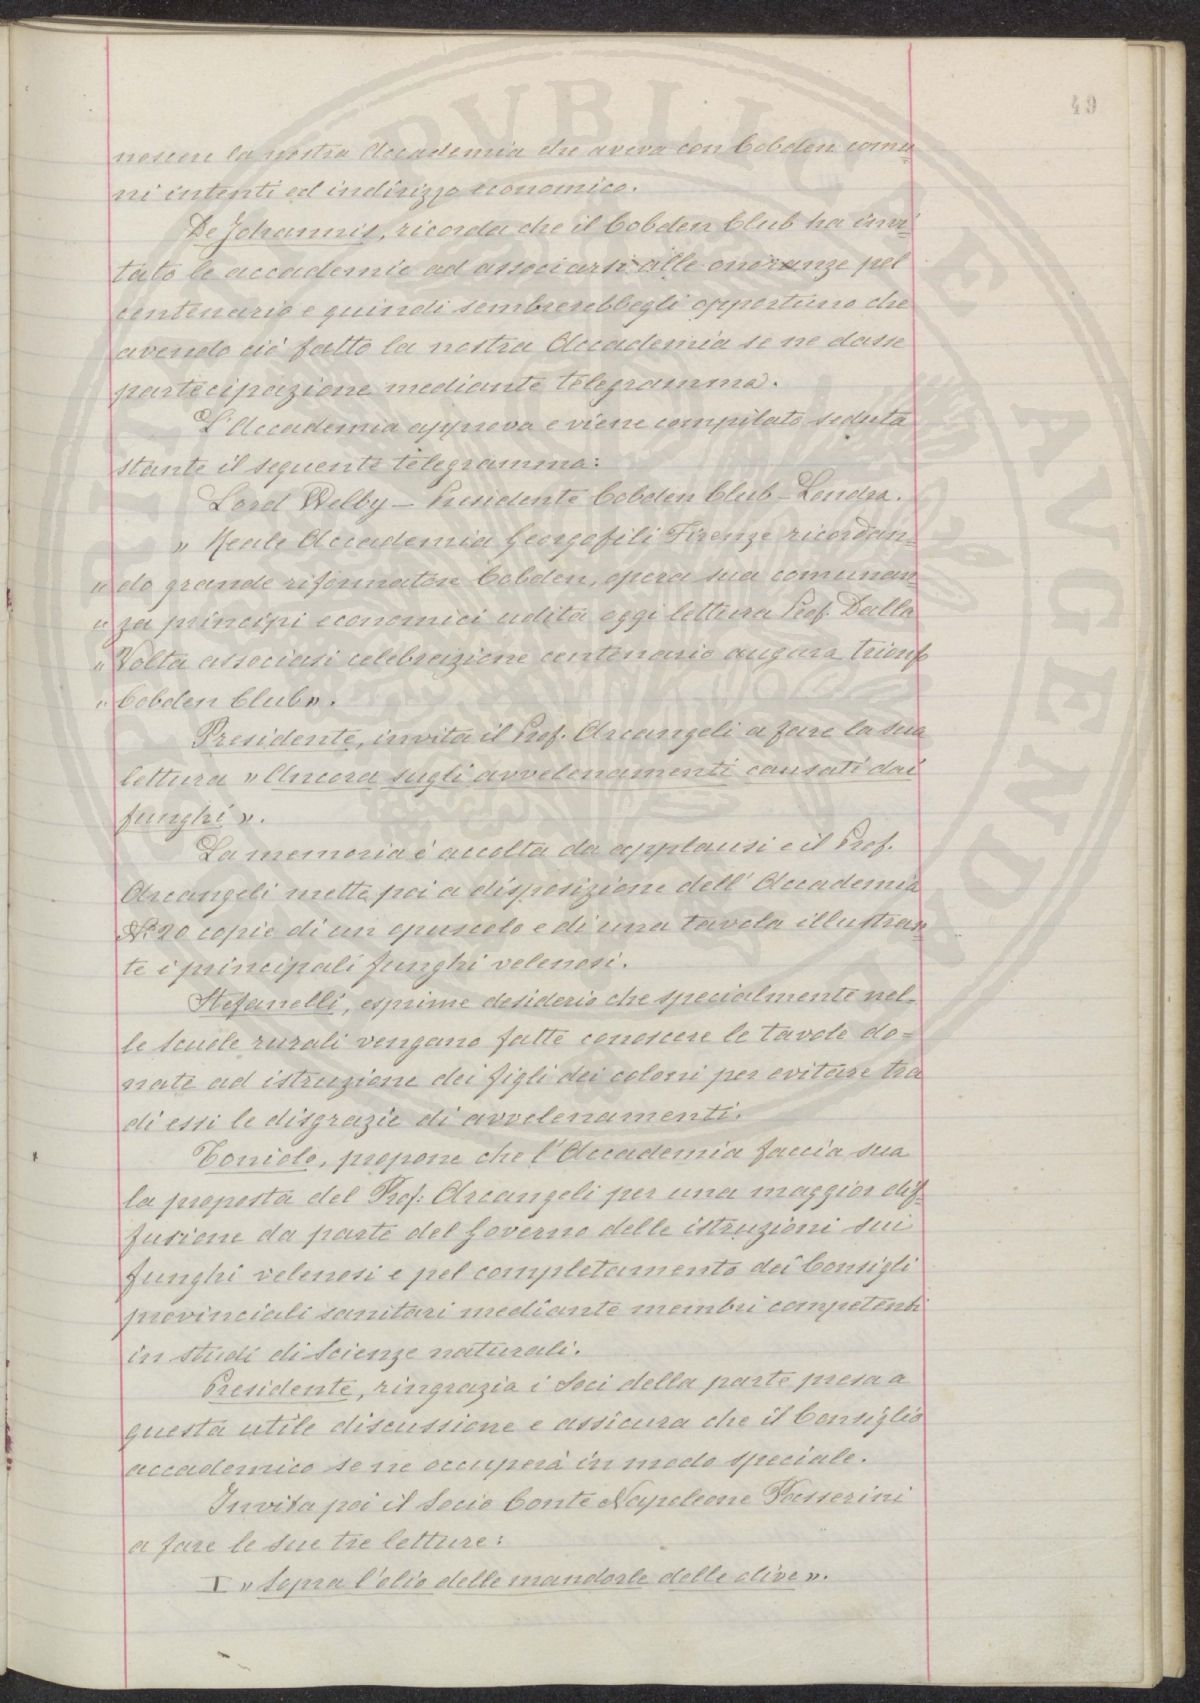 49
noscere la nostra Accademia che aveva con Cobden comu=
ni intenti ed indirizzo economico.
De Johannis, ricorda che il Cobden Club ha invi=
tato le accademie ad associarsi alle onoranze pel
centenario e quindi sembrerebbegli opportuno che
avendo ciò fatto la nostra Accademia se ne dasse
partecipazione mediante telegramma.
L'Accademia approva e viene compilato seduta
stante il seguente telegramma:
Lord Welby – Presidente Cobden Club – Londra.
" Reale Accademia Georgofili Firenze ricordan=
" do grande riformatore Cobden, opera sua comunan=
" za principi economici udita oggi lettura Prof. Dalla
" Volta associasi celebrazione centenario augura trionfo
" Cobden Club".
Presidente, invita il Prof. Arcangeli a fare la sua
lettura "Ancora sugli avvelenamenti causati dai
funghi".
La memoria è accolta da applausi e il Prof.
Arcangeli mette poi a disposizione dell'Accademia
N.° 20 copie di un opuscolo e di una tavola illustran=
te i principali funghi velenosi.
Stefanelli, esprime desiderio che specialmente nel=
le scuole rurali vengano fatte conoscere le tavole do=
nate ad istruzione dei figli dei coloni per evitare tra
di essi le disgrazie di avvelenamenti.
Toniolo, propone che l'Accademia faccia sua
la proposta del Prof: Arcangeli per una maggior dif=
fusione da parte del Governo delle istruzioni sui
funghi velenosi e pel completamento dei Consigli
provinciali sanitari mediante membri competenti
in studi di Scienze naturali.
Presidente, ringrazia i Soci della parte presa a
questa utile discussione e assicura che il Consiglio
accademico se ne occuperà in modo speciale.
Invita poi il Socio Conte Napoleone Passerini
a fare le sue tre letture:
I "Sopra l'olio delle mandorle delle olive".